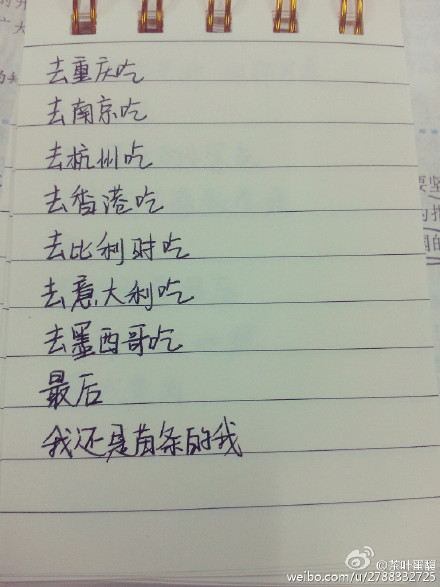 去重庆吃
去南京吃
去杭州吃
去香港吃
去比利时吃
去意大利吃
去墨西哥吃
最后
我还是苗条的我
@茶叶蛋
weibo.com/u/2788332725